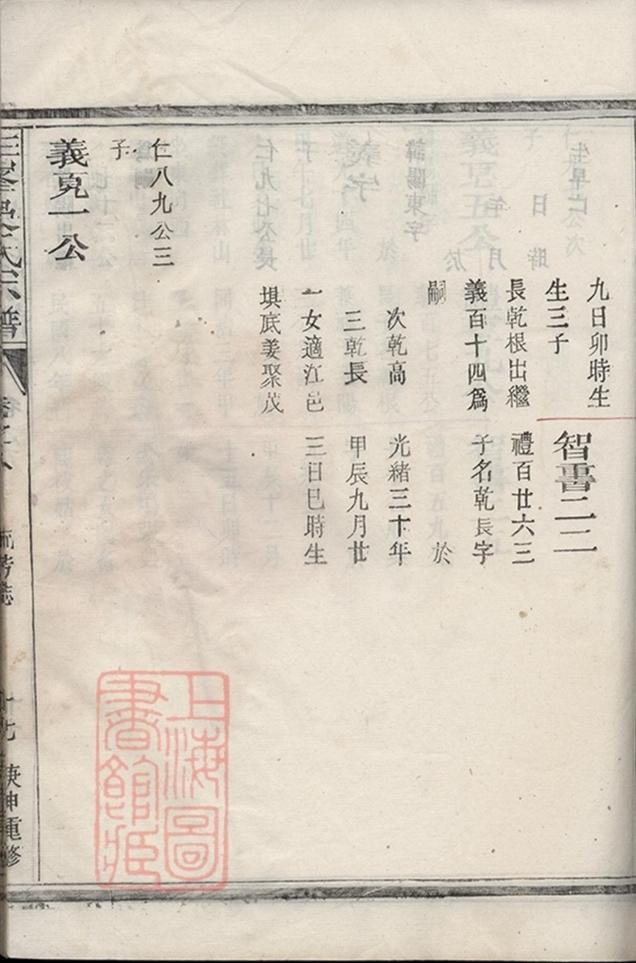 九日卯時生
生三子
長乾根出繼
義百十四爲
嗣
次乾高
三乾長
一女適江邑
垻底姜聚茂
智書二二
禮百廿六三
子名乾長字
於
光緒三十年
甲辰九月廿
三日巳時生
仁八九公三
子
義一公
氏宗譜
卷之八
流芳誌
十七
庚申重修
上海圖
書館藏